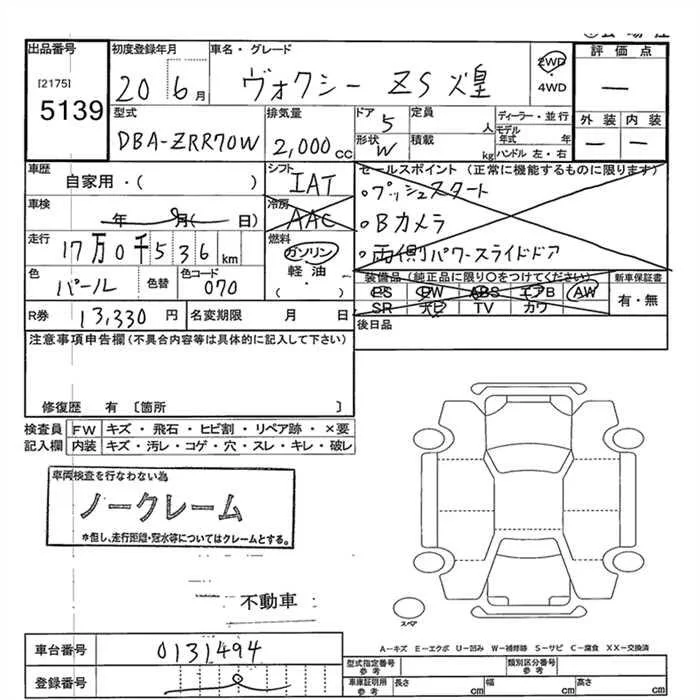 出品番号 初度登録年月 車名・グレード 評価点
[2175] 5139 20 6月 ヴォクシー ZS 煌 2WD ・ 4WD ―
型式 排気量 ドア 定員 ディーラー・並行 外装 内装
DBA-ZRR70W 2,000cc 5 人 モデル年式 年 ― ―
形状 W 積載 kg ハンドル 左・右
車歴 シフト セールスポイント (正常に機能するものに限ります)
自家用・( ) IAT ・プッシュスタート
車検 年 月( 日) 冷房 AAC ・Bカメラ
走行 17万0千536km 燃料 ガソリン 軽油 ( ・ ) ・両側パワースライドドア
色 パール 色替 色コード 070 装備品 (純正品に限り○をつけてください) 新車保証書
PS PW ABS エアB AW 有・無
SR ナビ TV カワ
R券 13,330円 名変期限 月 日 後日品
注意事項申告欄 (不具合内容等は具体的に記入して下さい)
修復歴 有 〔箇所 〕
検査員 FW キズ・飛石・ヒビ割・リペア跡・×要
記入欄 内装 キズ・汚レ・コゲ・穴・スレ・キレ・破レ
車両検査を行なわない為
ノークレーム
※但し、走行距離・冠水等についてはクレームとする。
不動車
スペア
A－キズ E－エクボ U－凹み W－補修跡 S－サビ C－腐食 XX－交換済
車台番号 0131494 型式指定番号 参考 類別区分番号 参考
登録番号 車庫証明用 参考 長さ cm 幅 cm 高さ cm